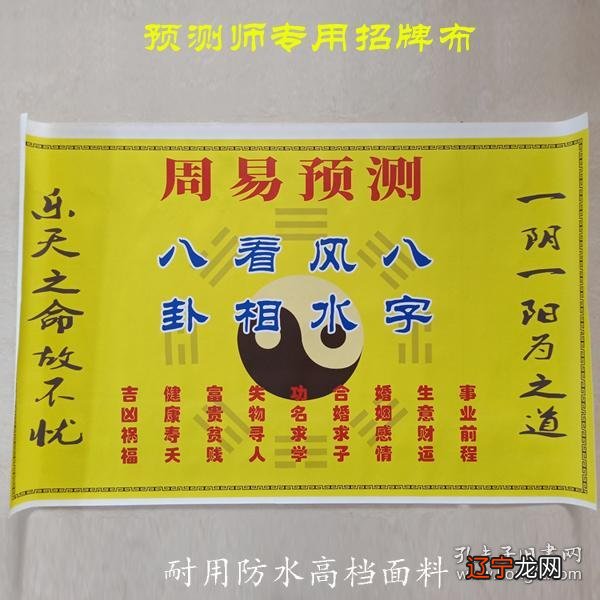 预测师专用招牌布
周易预测
一阴一阳为之道
八字
风水
看相
八卦
事业前程
生意财运
婚姻感情
合婚求子
功名求学
失物寻人
富贵贫贱
健康寿夭
吉凶祸福
乐天之命故不忧
耐用防水高档面料
孔夫子旧书网
辽宁龙网